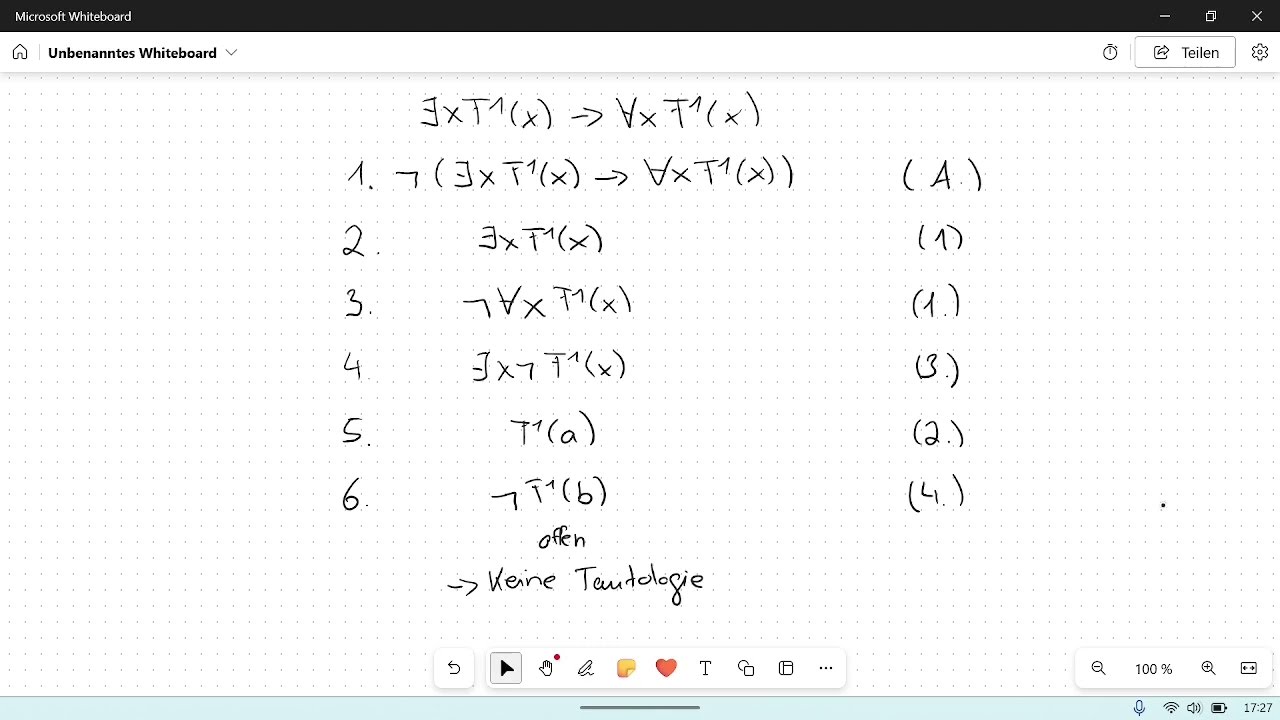 Microsoft Whiteboard
Unbenanntes Whiteboard
Teilen
∃xT¹(x) → ∀xT¹(x)
1. ¬(∃xT¹(x) → ∀xT¹(x)) (A.)
2. ∃xT¹(x) (1)
3. ¬∀xT¹(x) (1.)
4. ∃x¬T¹(x) (3.)
5. T¹(a) (2.)
6. ¬T¹(b) (4.)
offen
→ Keine Tautologie
100 %
17:27